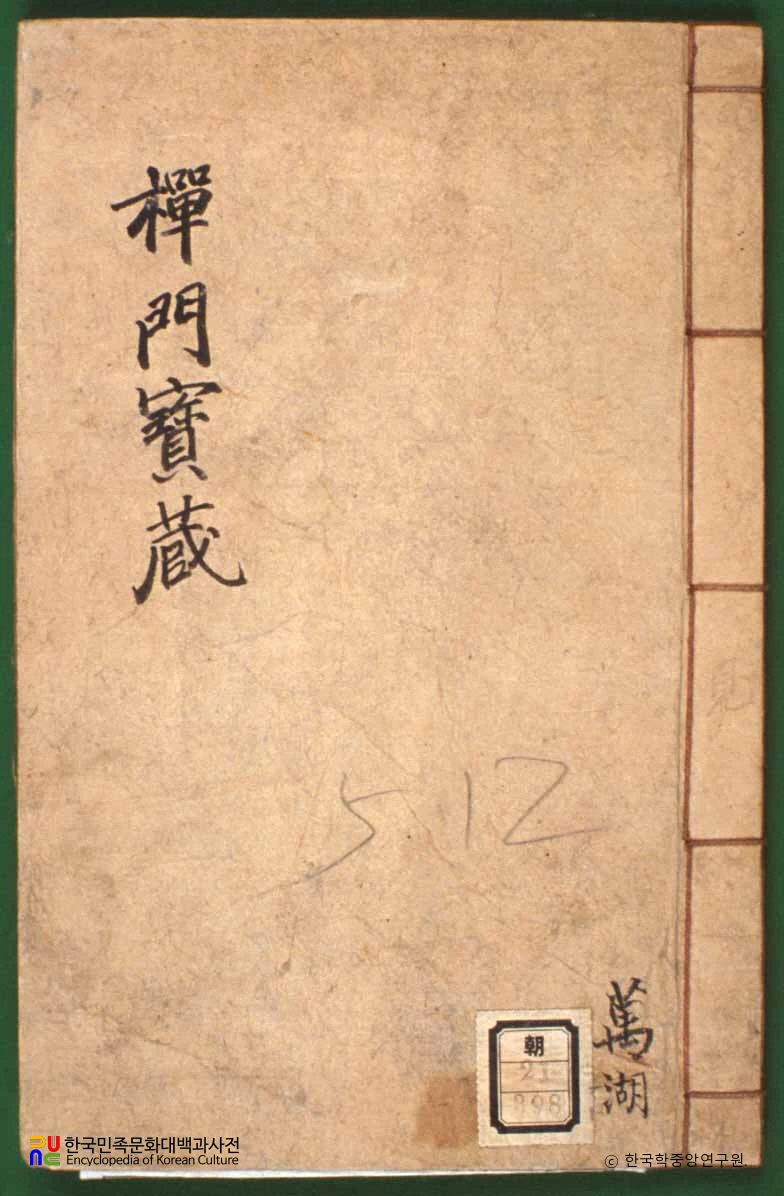 禪門寶蔵
見
5 12
萬湖
朝
21
898
한국민족문화대백과사전
Encyclopedia of Korean Culture
ⓒ 한국학중앙연구원